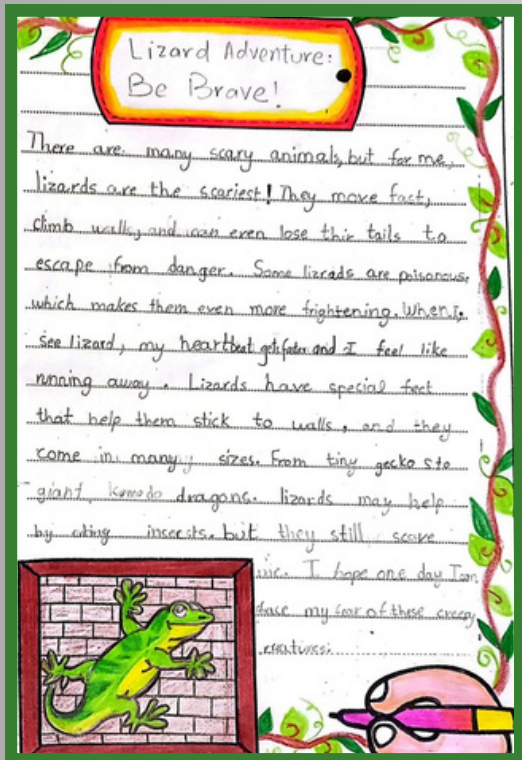 Lizard Adventure:
Be Brave!
There are many scary animals, but for me,
lizards are the scariest! They move fast,
climb walls, and can even lose thir tails to
escape from danger. Some lizrads are poisonous,
which makes them even more frightening. When I
see lizard, my heartbeat gets faster and I feel like
running away. Lizards have special feet
that help them stick to walls, and they
come in many sizes. From tiny geckos to
giant komodo dragons. lizards may help
by eating insects. but they still scare
me. I hope one day I can
face my fear of these creepy
creatures.